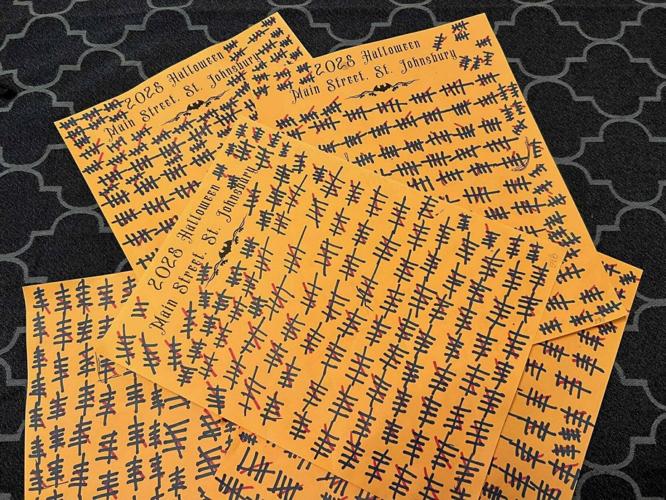 2023 Halloween
Main Street, St. Johnsbury
2023 Halloween
Main Street, St. Johnsbury
2023 Halloween
Main Street, St. Johnsbury